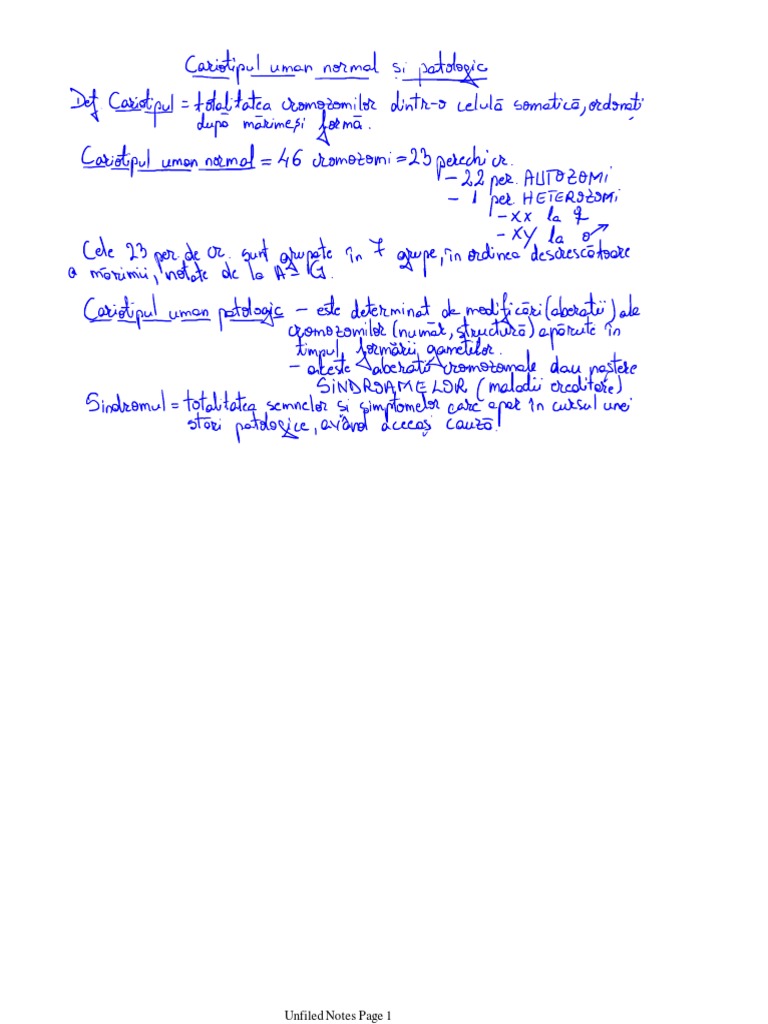 Cariotipul uman normal și patologic
Def Cariotipul = totalitatea cromozomilor dintr-o celulă somatică, ordonați
după mărime și formă.
Cariotipul uman normal = 46 cromozomi = 23 perechi cr.
- 22 per. AUTOZOMI
- 1 per. HETEROZOMI
- XX la ♀
- XY la ♂
Cele 23 per. de cr. sunt grupate în 7 grupe, în ordinea descrescătoare
a mărimii, notate de la A - G.
Cariotipul uman patologic - este determinat de modificări (aberații) ale
cromozomilor (număr, structură) apărute în
timpul formării gameților.
- aceste aberații cromozomale dau naștere
SINDROAMELOR (maladii ereditare)
Sindromul = totalitatea semnelor și simptomelor care apar în cursul unei
stări patologice, având aceeași cauză.
Unfiled Notes Page 1